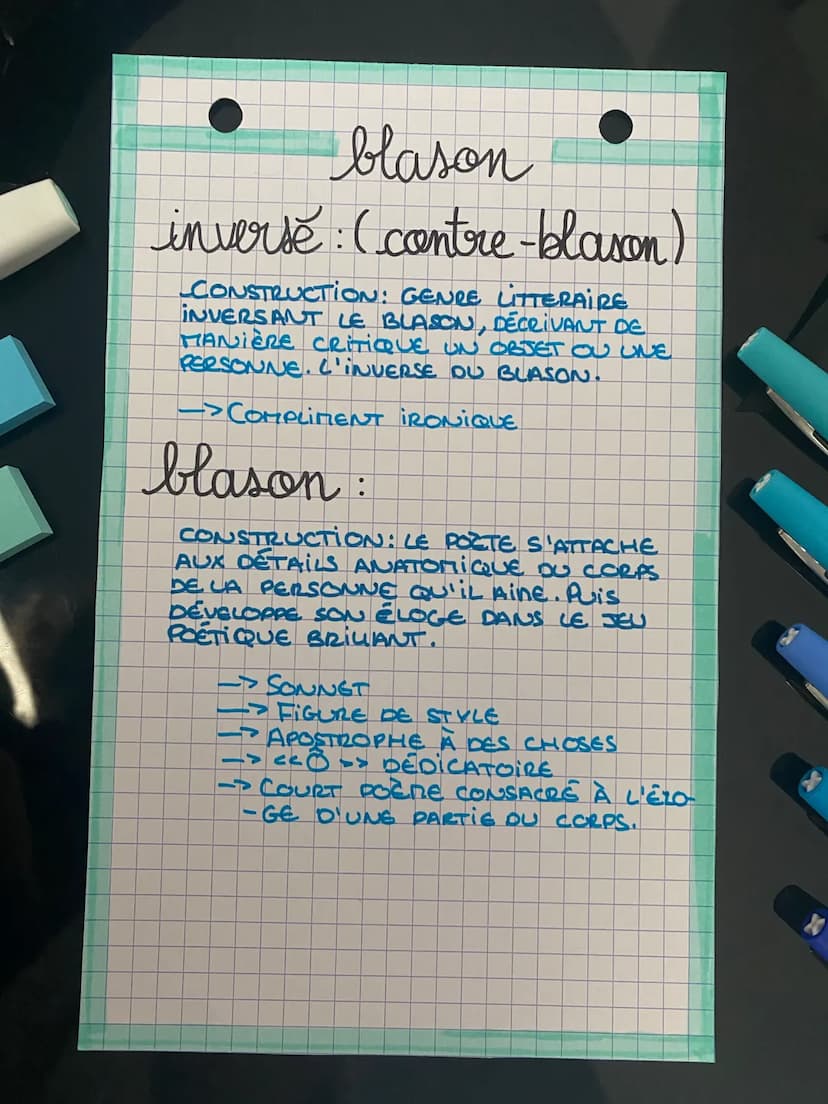 blason
inversé : (contre-blason)
CONSTRUCTION: GENRE LITTERAIRE
INVERSANT LE BLASON, DÉCRIVANT DE
MANIÈRE CRITIQUE UN OBJET OU UNE
PERSONNE. L'INVERSE DU BLASON.
—> COMPLIMENT IRONIQUE
blason :
CONSTRUCTION: LE POÈTE S'ATTACHE
AUX DÉTAILS ANATOMIQUE DU CORPS
DE LA PERSONNE QU'IL AIME. PUIS
DÉVELOPPE SON ÉLOGE DANS LE JEU
POÉTIQUE BRILLANT.
—> SONNET
—> FIGURE DE STYLE
—> APOSTROPHE À DES CHOSES
—> << Ô >> DÉDICATOIRE
—> COURT POÈME CONSACRÉ À L'ÉLO-
-GE D'UNE PARTIE DU CORPS.